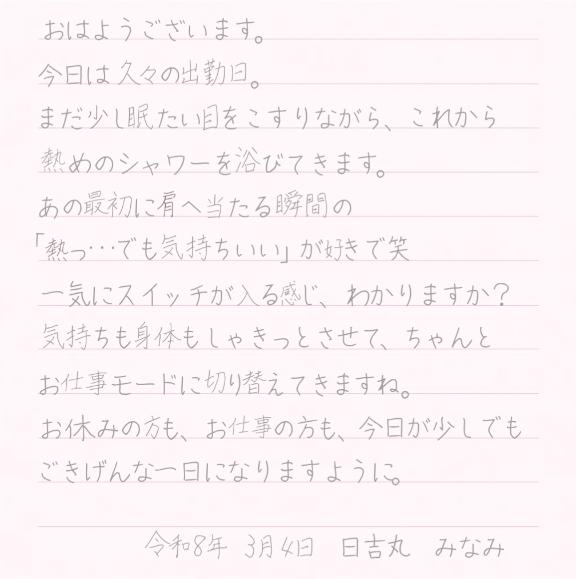 おはようございます。
今日は久々の出勤日。
まだ少し眠たい目をこすりながら、これから
熱めのシャワーを浴びてきます。
あの最初に肩へ当たる瞬間の
「熱っ…でも気持ちいい」が好きで笑
一気にスイッチが入る感じ、わかりますか？
気持ちも身体もしゃきっとさせて、ちゃんと
お仕事モードに切り替えてきますね。
お休みの方も、お仕事の方も、今日が少しでも
ごきげんな一日になりますように。
令和8年 3月4日 日吉丸 みなみ